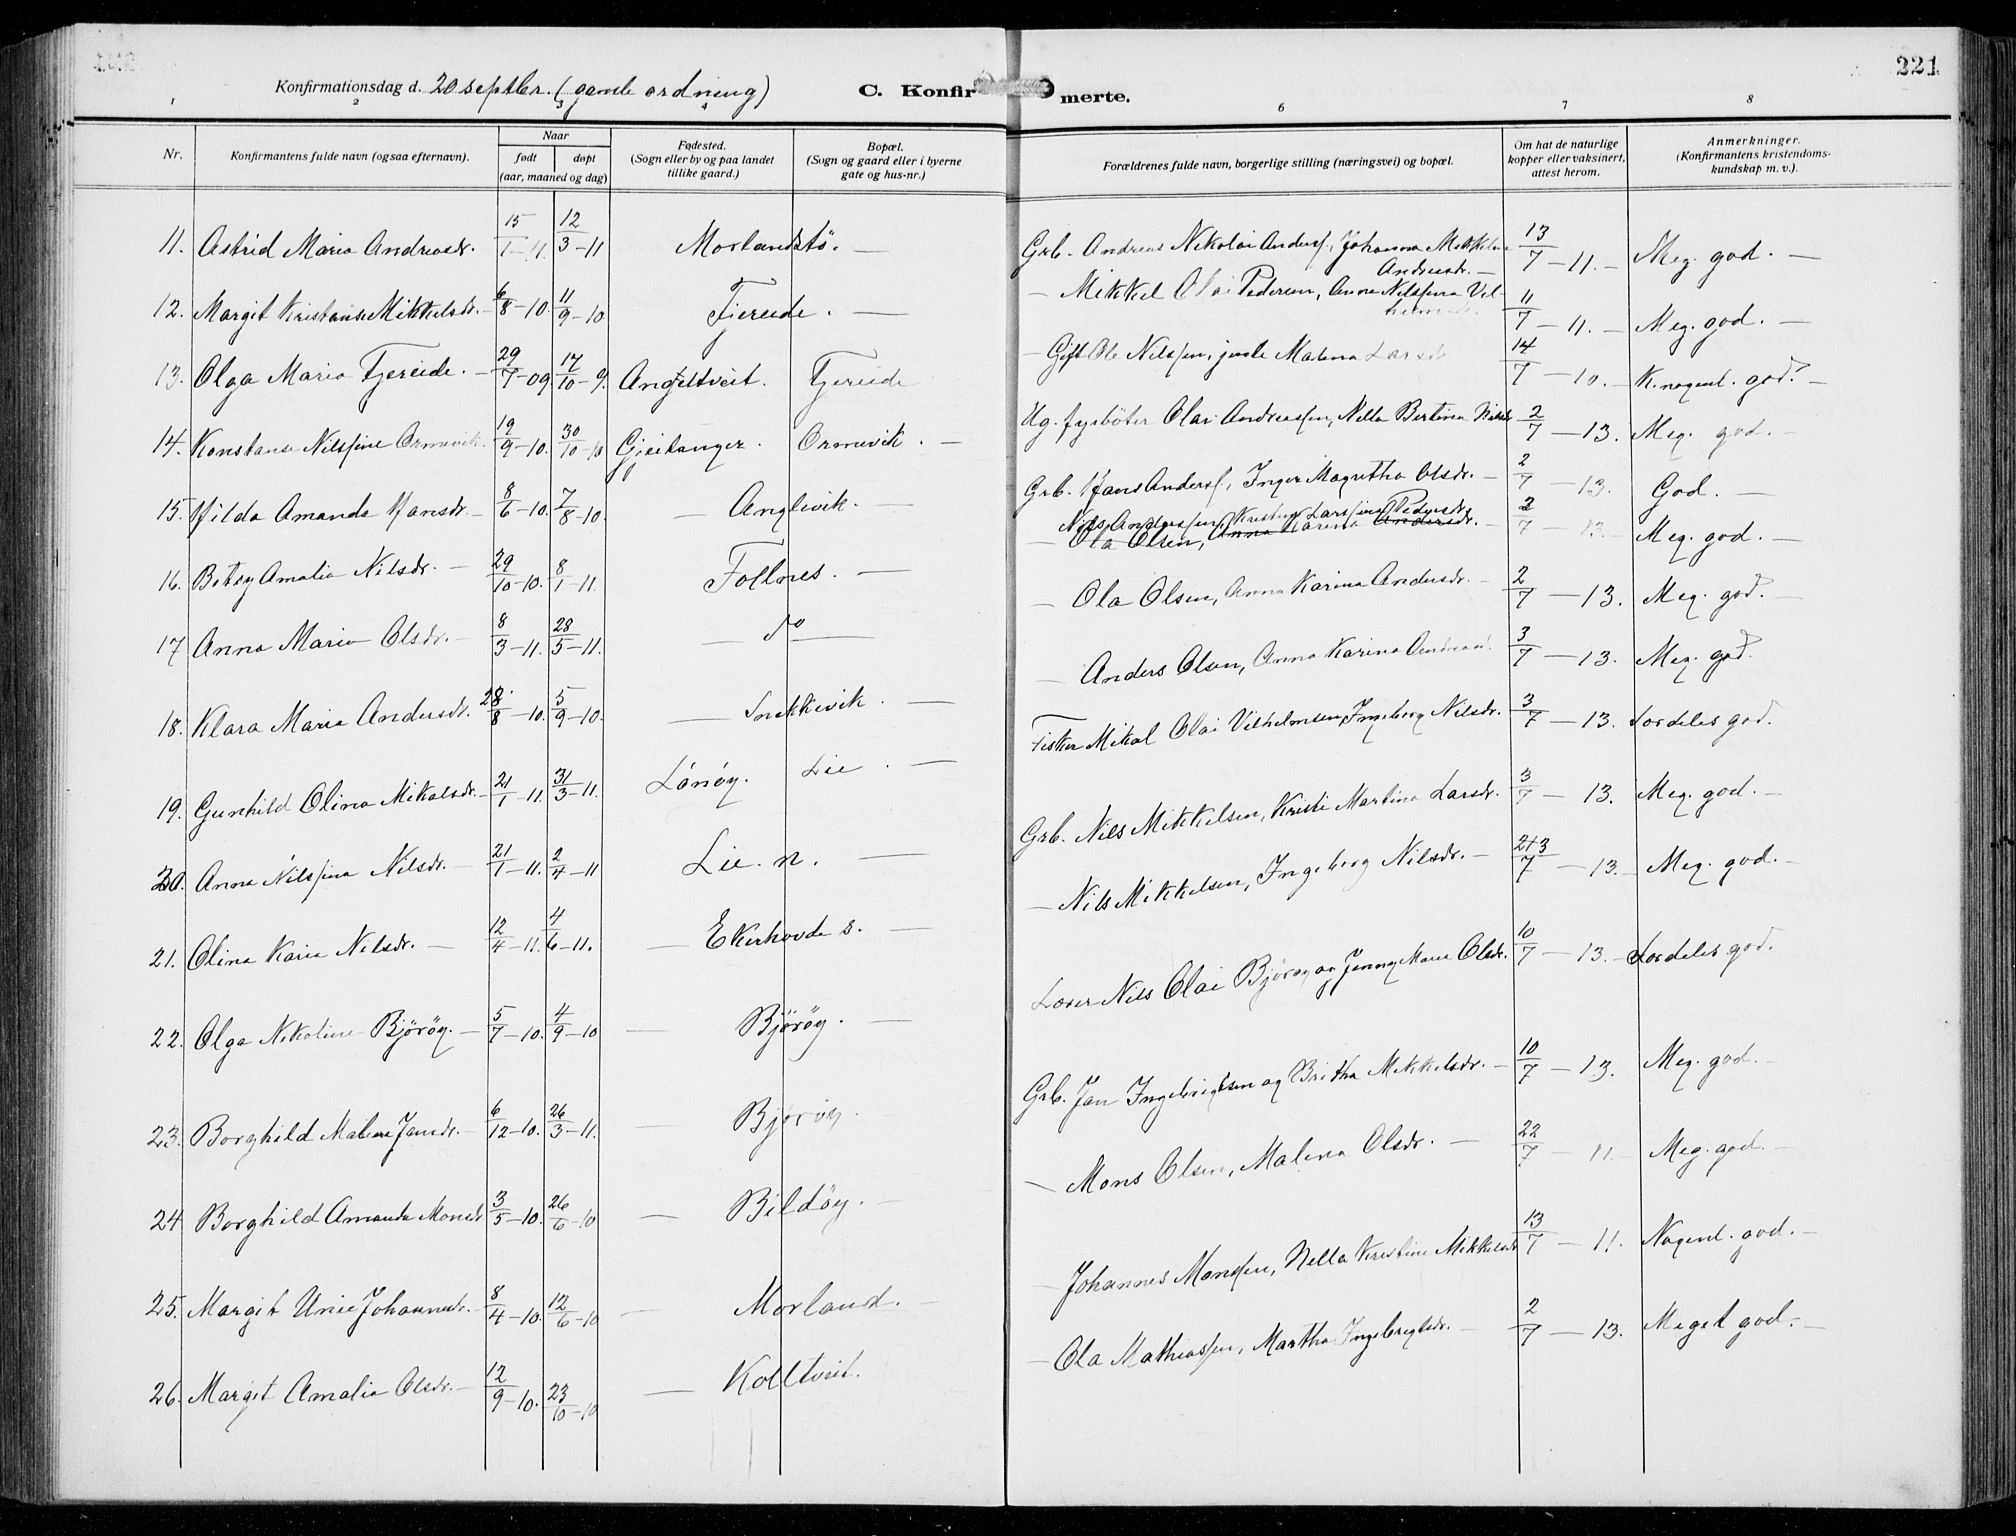 221
Konfirmationsdag d. 20 septbr. (gamle ordning) C. Konfir merte.
1 2 3 4 6 7 8
Nr. Konfirmantens fulde navn (ogsaa efternavn). Naar født døpt (aar, maaned og dag) Fødested. (Sogn eller by og paa landet tillike gaard.) Bopæl. (Sogn og gaard eller i byerne gate og hus-nr.) Forældrenes fulde navn, borgerlige stilling (næringsvei) og bopæl. Om hat de naturlige kopper eller vaksinert, attest herom. Anmerkninger. (Konfirmantens kristendoms-kundskap m. v.).
11. Astrid Maria Andreasdr. 15/1-11. 12/3-11 Morlandstö. — Grb. Andreas Nikolai Anders., Johanna Mikkeline Andreasdr. — 13/7-11. — Meg. god. —
12. Margit Kristanse Mikkelsdr. 6/8-10. 11/9-10 Tjereide. — — Mikkel Olai Pedersen, Anna Nilssina Vilhelmsdr. 11/7-11. — Meg. god. —
13. Olga Maria Tjereide. — 29/7-09 17/10-9. Angeltveit. Tjereide — Gift Ole Nilssen, Malena Larsd 14/7-10. — K. nogenl. god. —
14. Konstanse Nilssine Ormevik. 19/9-10. 30/10-10 Gjeitanger. Ormevik. — Ug. fyrböter Olai Andreassen, Nella Bertina Nilsdr 2/7-13. Meg. god. —
15. Hilda Amanda Hansdr. — 8/6-10. 7/8-10. — Anglevik. — Grb. Hans Anders., Inger Magretha Olsdr. — 2/7-13. God. —
16. Betsy Amalia Nilsdr. — 29/10-10. 8/1-11. Follnes. — Nils Anderssen, Kristine Larssine Pedersdr. — 2/7-13. — Meg. god. —
— Ola Olsen, Anna Karina Andersdr.
17 Anna Maria Olsdr. — 8/3-11. 28/5-11. — do — — Ola Olsen, Anna Karina Andersdr. — 2/7-13. Meg. god. —
18. Klara Maria Andersdr. 28/8-10. 5/9-10. — Snekkevik. — — Anders Olsen, Anna Karina Andreasd. 3/7-13. Meg. god.
19. Gunhild Olina Mikalsdr. — 21/1-11. 31/3-11. Lönöy. Lie. — Fisker Mikal Olai Vilhelmsen, Ingeborg Nilsdr. 3/7-13. Sordeles god.
20. Anna Nilssina Nilsdr. — 21/1-11. 2/4-11 Lie. n. — Grb. Nils Mikkelsen, Kristi Martina Larsdr. 3/7-13. Meg. god. —
21. Olina Karia Nilsdr. — 12/4-11. 4/6-11. — Ekerhovde s. — — Nils Mikkelsen, Ingeborg Nilsdr. — 2+3/7-13. — Meg. god. —
22. Olga Nikoline Björöy. — 5/7-10. 4/9-10 — Björöy. — Lærer Nils Olai Björöy og Jenny Marie Olsdr. 10/7-13. — Særdeles god.
23. Borghild Malene Jansdr. — 6/12-10. 26/3-11. — Björöy. Grb. Jan Ingebrigtsen og Britha Mikkelsdr. — 10/7-13. Meg. god. —
24 Borghild Amanda Monsdr 3/5-10. 26/6-10 — Bildöy. — — Mons Olsen, Malena Olsdr. — 22/7-11. — Meg. god. —
25. Margit Unie Johannesdr. — 8/4-10. 12/6-10 — Morland. — — Johannes Monssen, Nella Kristine Mikkelsdr 13/7-11. Nogenl. god. —
26. Margit Amalia Olsdr. — 12/9-10. 23/10-10 — Kolltveit. — Ola Mathiassen, Martha Ingebrigtsdr. — 2/7-13. Meget god. —